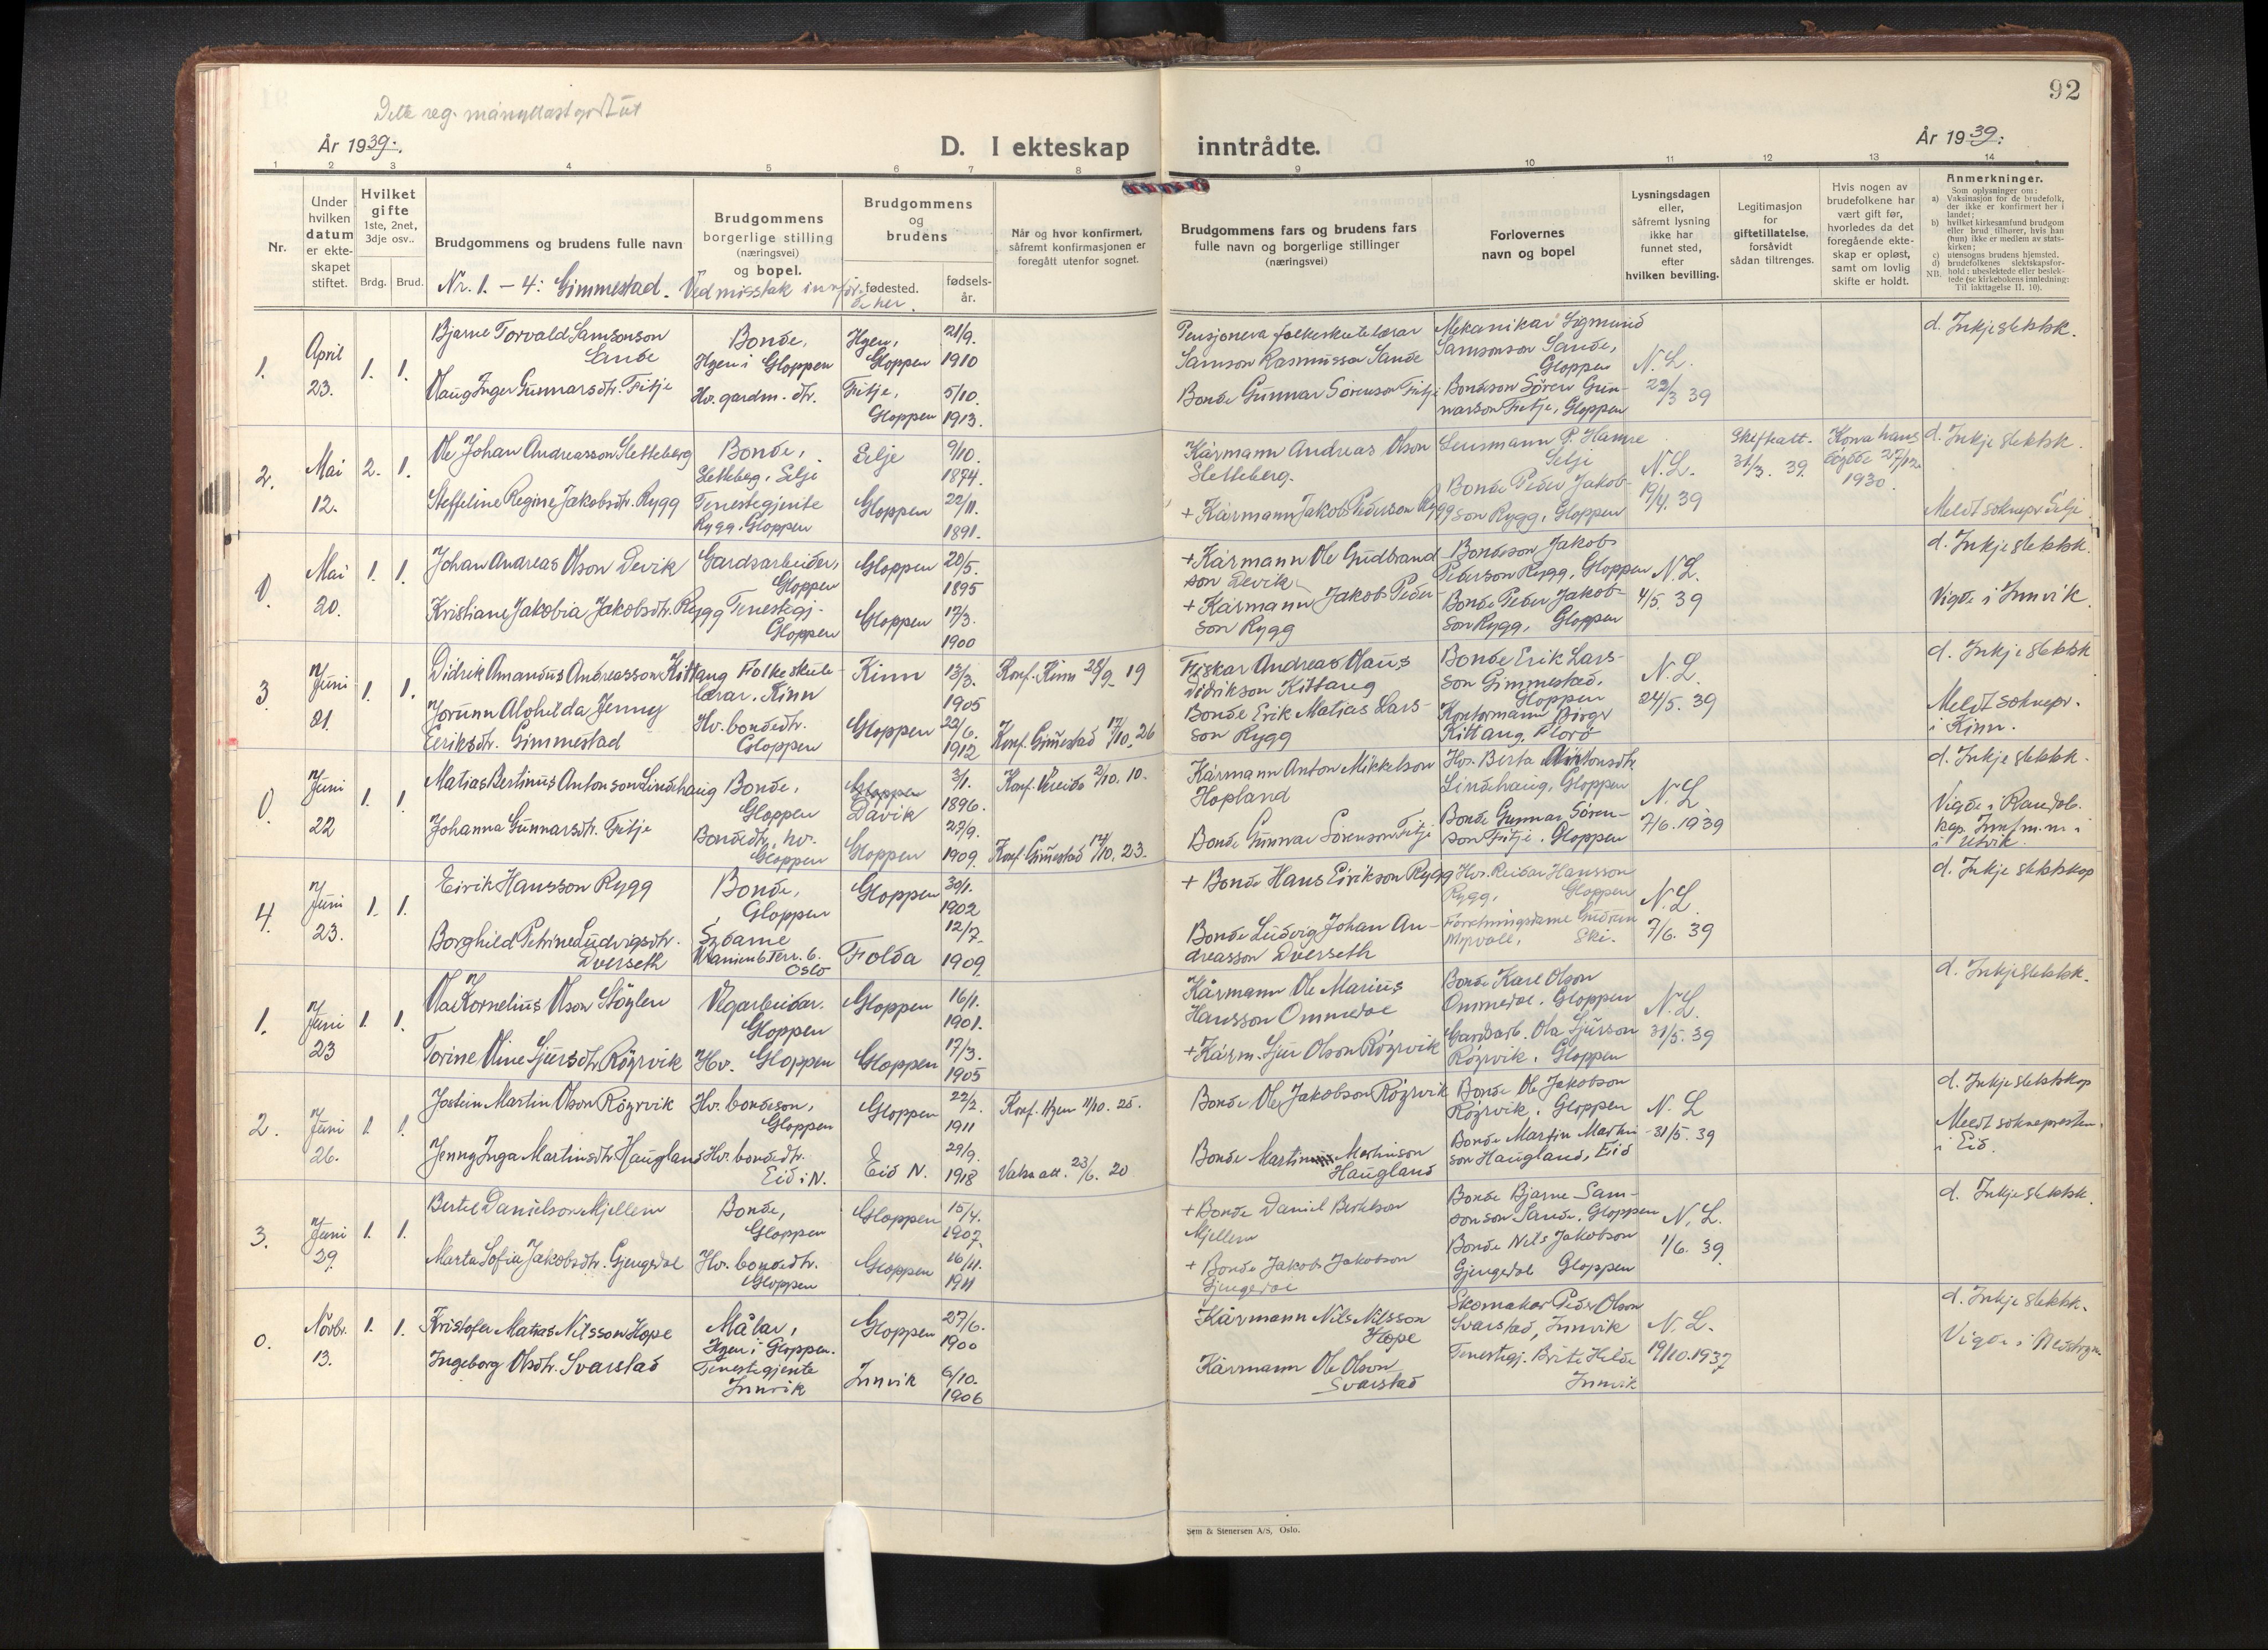 92
År 1939.
D. I ekteskap inntrådte.
År 1939.
1 2 3 4 5 6 7 8 9 10 11 12 13 14
Nr.
Under
hvilken
datum
er ekte-
skapet
stiftet.
Hvilket
gifte
1ste, 2net,
3dje osv..
Brdg. Brud.
Brudgommens og brudens fulle navn
Brudgommens
borgerlige stilling
(næringsvei)
og bopel.
Brudgommens
og
brudens
fødested.
fødsels-
år.
Når og hvor konfirmert,
såfremt konfirmasjonen er
foregått utenfor sognet.
Brudgommens fars og brudens fars
fulle navn og borgerlige stillinger
(næringsvei)
Forlovernes
navn og bopel
Lysningsdagen
eller,
såfremt lysning
ikke har
funnet sted,
efter
hvilken bevilling.
Legitimasjon
for
giftetillatelse,
forsåvidt
sådan tiltrenges.
Hvis nogen av
brudefolkene har
vært gift før,
hvorledes da det
foregående ekte-
skap er opløst,
samt om lovlig
skifte er holdt.
Anmerkninger.
Som oplysninger om:
a) Vaksinasjon for de brudefolk,
der ikke er konfirmert her i
landet;
b) hvilket kirkesamfund brudgom
eller brud tilhører, hvis han
(hun) ikke er medlem av stats-
kirken;
c) utensogns brudens hjemsted.
d) brudefolkenes slektskapsfor-
hold: ubeslektede eller beslek-
NB. tede (se kirkebokens innledning:
Til iakttagelse II, 10).
Nr. 1. - 4: Gimmestad. Ved misstak innför-
te her.
1.
April
23.
1. 1.
Bjarne Torvald Samsonson
Sande
Bonde,
Hyen i Gloppen
Hyen,
Gloppen
21/9.
1910
Pensjonera folkeskulelærar
Samson Rasmusson Sande
Mekanikar Sigmund
Samsonson Sande,
Gloppen
N.L.
22/3 39
d. Inkje slektsk.
Olaug Inger Gunnarsdtr. Fitje
Hv. gardm. dtr.
Fitje,
Gloppen
5/10.
1913.
Bonde Gunnar Sörenson Fitje
Bondeson Sören Gun-
narson Fitje, Gloppen
2.
Mai
12.
2. 1.
Ole Johan Andreasson Sletteberg
Bonde,
Sletteberg, Selje
Selje
9/10.
1874.
Kårmann Andreas Olson
Sletteberg.
Lensmann P. Hamre
Selje
N.L.
19/4. 39
Skifteatt.
31/3. 39.
Kona hans
döydde 27/12
1930.
d. Inkje slektsk.
Steffeline Regine Jakobsdtr. Rygg
Tenestegjente
Rygg, Gloppen
Gloppen
22/11.
1891.
+ Kårmann Jakob Pederson Rygg
Bonde Peder Jakob-
son Rygg, Gloppen
Meldt soknepr. Selje
0.
Mai
20.
1. 1.
Johan Andreas Olson Devik
Gardsarbeider,
Gloppen
Gloppen
20/5.
1895
+ Kårmann Ole Gudbrand-
son Devik
Bondeson Jakob
Pederson Rygg, Gloppen
N.L.
4/5. 39
d. Inkje slektsk.
Kristiane Jakobia Jakobsdtr. Rygg
Tenestegj.
Gloppen
Gloppen
17/3.
1900
+ Kårmann Jakob Peder-
son Rygg
Bonde Peder Jakob-
son Rygg, Gloppen
Vigde i Innvik.
3
Juni
21.
1. 1.
Didrik Amandus Andreasson Kittang
Folkeskule-
lærar. Kinn
Kinn
13/3.
1905
Konf. Kinn 28/9 19
Fiskar Andreas Olaus
Didrikson Kittang
Bonde Erik Lars-
son Gimmestad,
Gloppen
N.L.
24/5. 39
d. Inkje slektsk
Jorunn Alvhilda Jenny
Eeriksdtr. Gimmestad
Hv. bondedtr.
Gloppen
Gloppen
22/6.
1912
Konf. Gimestad 17/10. 26
Bonde Erik Matias Lars-
son Rygg
Kontormann Birger
Kittang, Florö
Meldt soknepr.
i Kinn.
0.
Juni
22
1. 1.
Matias Bertinus Antonson Lindehaug
Bonde,
Gloppen
Gloppen
Davik
3/1.
1896.
Konf. Vereide 2/10. 10.
Kårmann Anton Mikkelson
Hopland
Hv. Berta Antonsdtr.
Lindehaug, Gloppen
N.L.
7/6. 1939
d. Inkje slektsk.
Johanna Gunnarsdtr. Fitje
Bondedtr., hv.
Gloppen
Gloppen
27/9.
1909.
Konf. Gimestad 14/10. 23.
Bonde Gunnar Sörenson Fitje
Bonde Gunnar Sören-
son Fitje, Gloppen
Vigde i Randab.
i Utvik.
4.
Juni
23.
1. 1.
Eirik Hansson Rygg
Bonde,
Gloppen
Gloppen
30/1.
1902
+ Bonde Hans Eirikson Rygg
Hv. Reidar Hansson
Rygg, Gloppen
N.L.
7/6. 39
d. Inkje slektskap
Borghild Petrine Ludvigsdtr.
Dverseth
Sydame
Oslo
Folda
12/7.
1909.
Bonde Ludvig Johan An-
dreasson Dverseth
Forretningsdame Gudrun
Myrvoll, Ski.
1.
Juni
23
1. 1.
Olai Kornelius Olson Stöylen
Vegarbeidar.
Gloppen
Gloppen
16/1.
1901.
Kårmann Ole Marius
Hansson Ommedal
Bonde Karl Olson
Ommedal, Gloppen
N.L.
31/5. 39
d. Inkje slektsk.
Torine Oline Sjursdtr. Röyrvik
Hv. Gloppen
Gloppen
17/3.
1905
+ Kårm. Sjur Olson Röyrvik
Gardarb. Ola Sjurson
Röyrvik, Gloppen
2.
Juni
26.
1. 1.
Jostein Martin Olson Röyrvik
Hv. bondeson,
Gloppen
Gloppen
22/2.
1911
Konf. Hyen 11/10. 25.
Bonde Ole Jakobson Röyrvik
Bonde Ole Jakobson
Röyrvik, Gloppen
N.L.
31/5. 39
d. Inkje slektskap
Jenny Inga Martinsdtr. Haugland
Hv. bondedtr.
Eid i N.
Eid N.
29/9.
1918
Vaks. att. 23/6. 20
Bonde Martin Martinson
Haugland
Bonde Martin Martin-
son Haugland, Eid
Meldt soknepresten
i Eid.
3.
Juni
29.
1. 1.
Bertel Danielson Mjellem
Bonde,
Gloppen
Gloppen
15/4.
1907.
+ Bonde Daniel Bertelson
Mjellem
Bonde Bjarne Sam-
sonson Sande, Gloppen
N.L.
1/6. 39
d. Inkje slektsk.
Marta Sofia Jakobsdtr. Gjengedal
Hv. bondedtr.
Gloppen
Gloppen
16/11.
1911
+ Bonde Jakob Jakobson
Gjengedal
Bonde Nils Jakobson
Gjengedal Gloppen
0.
Novbr.
13.
1. 1.
Kristofer Matias Nilsson Hope
Målar,
Hyen i Gloppen.
Gloppen
27/6.
1900
Kårmann Nils Nilsson
Hope
Skomakar Peder Olson
Svarstad, Innvik
N.L.
19/10. 1937
d. Inkje slektsk.
Ingeborg Olsdtr. Svarstad
Tenestegjente
Innvik
Innvik
6/10.
1906
Kårmann Ole Olson
Svarstad
Tenestegj. Brite Hilde
Innvik
Vigde i Nedstryn
Sem & Stenersen A/S, Oslo.